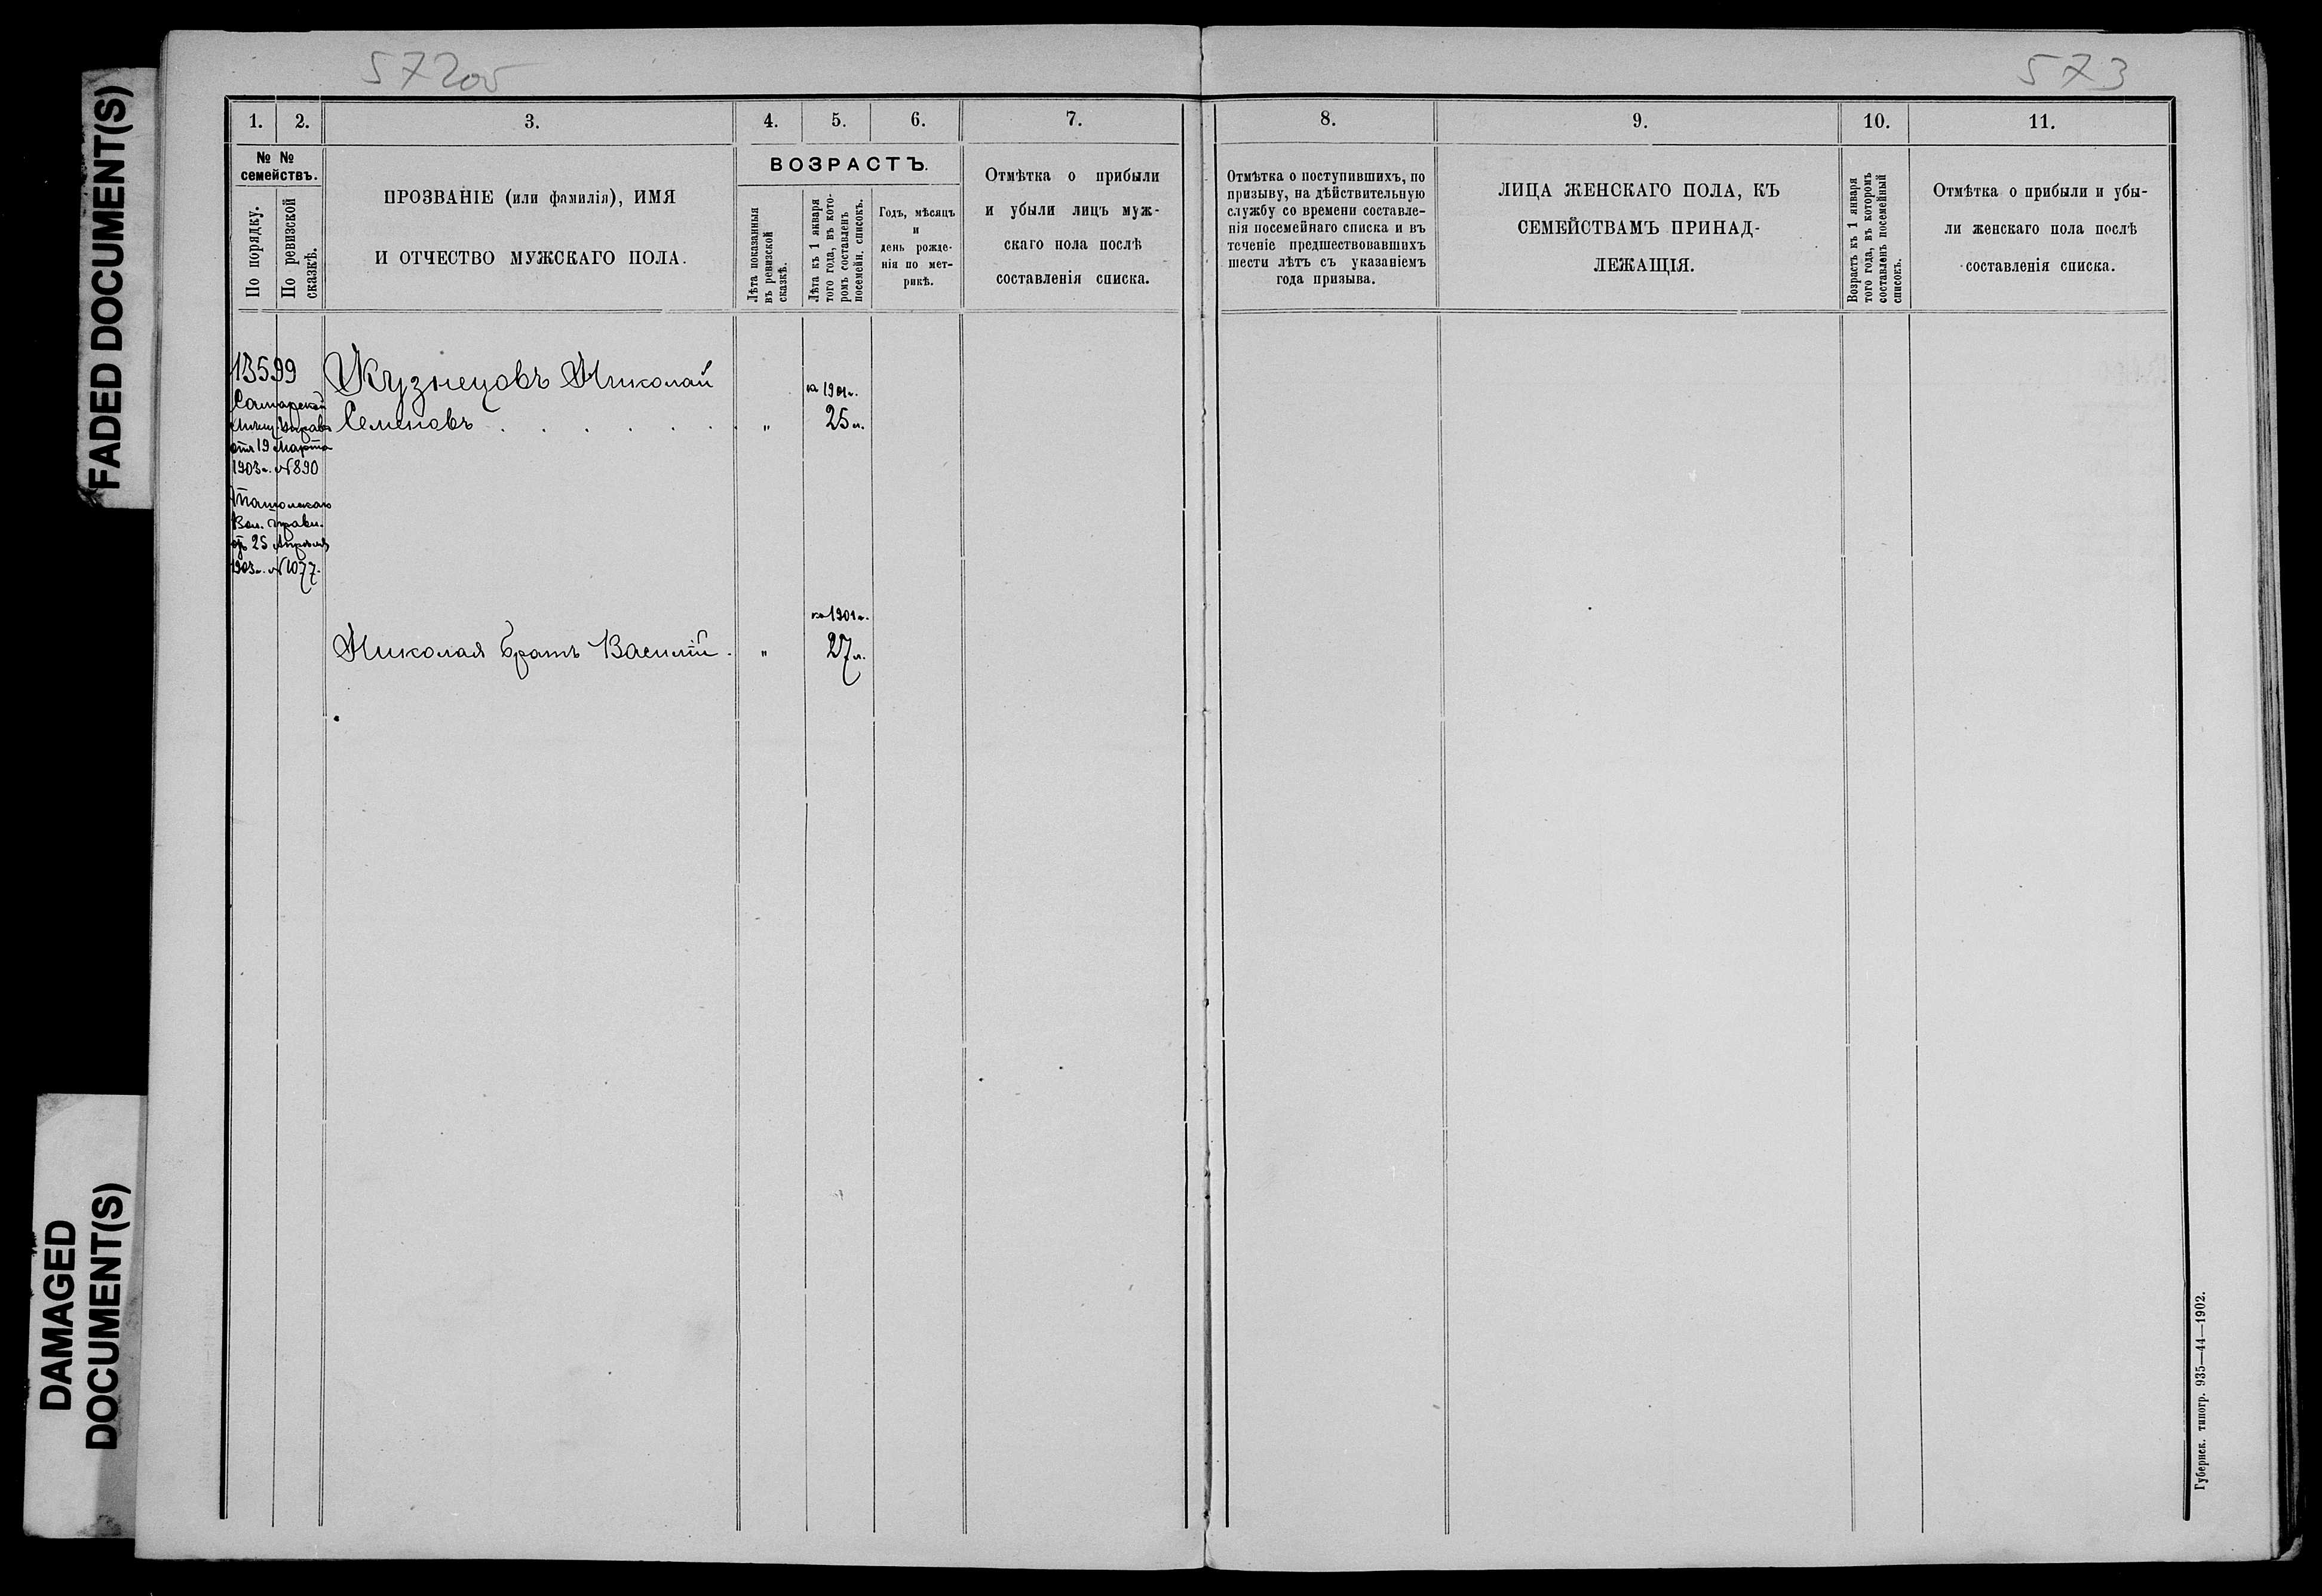 FADED DOCUMENT(S)
DAMAGED
DOCUMENT(S)
572об
573
1. 2. 3. 4. 5. 6. 7.
№ №
семействъ.
По порядку.
По ревизской
сказкѣ.
ПРОЗВАНІЕ (или фамилія), ИМЯ
И ОТЧЕСТВО МУЖСКАГО ПОЛА.
ВОЗРАСТЪ.
Лѣта показанныя
въ ревизской
сказкѣ.
Лѣта къ 1 января
того года, въ кото-
ромъ составленъ
посемейн. списокъ.
Годъ, мѣсяцъ
и
день рожде-
нія по мет-
рикѣ.
Отмѣтка о прибыли
и убыли лицъ муж-
скаго пола послѣ
составленія списка.
8. 9. 10. 11.
Отмѣтка о поступившихъ, по
призыву, на дѣйствительную
службу со времени составле-
нія посемейнаго списка и въ
теченіе предшествовавшихъ
шести лѣтъ съ указаніемъ
года призыва.
ЛИЦА ЖЕНСКАГО ПОЛА, КЪ
СЕМЕЙСТВАМЪ ПРИНАД-
ЛЕЖАЩІЯ.
Возрастъ къ 1 января
того года, въ которомъ
составленъ посемейный
списокъ.
Отмѣтка о прибыли и убы-
ли женскаго пола послѣ
составленія списка.
13599 Кузнецовъ Николай
на 1901г.
Самарской
Семеновъ . . . . . . " 25 л.
Управы
отъ 19 Марта
1903г. №890
Вол. Правл.
отъ 25 Апрѣля
1903г. №1077.
на 1901г.
Николая братъ Василій. " 27 л.
Губернск. типогр. 935—44—1902.